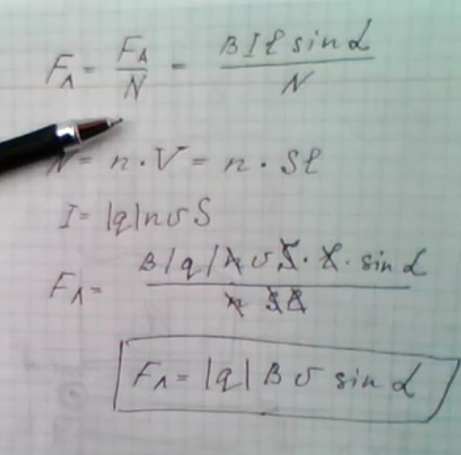 Fл = FA/N = BIℓ sin α/N
N = n · V = n · Sℓ
I = |q|nυS
Fл = B|q|nυS · ℓ · sin α/n Sℓ
Fл = |q| B υ sin α